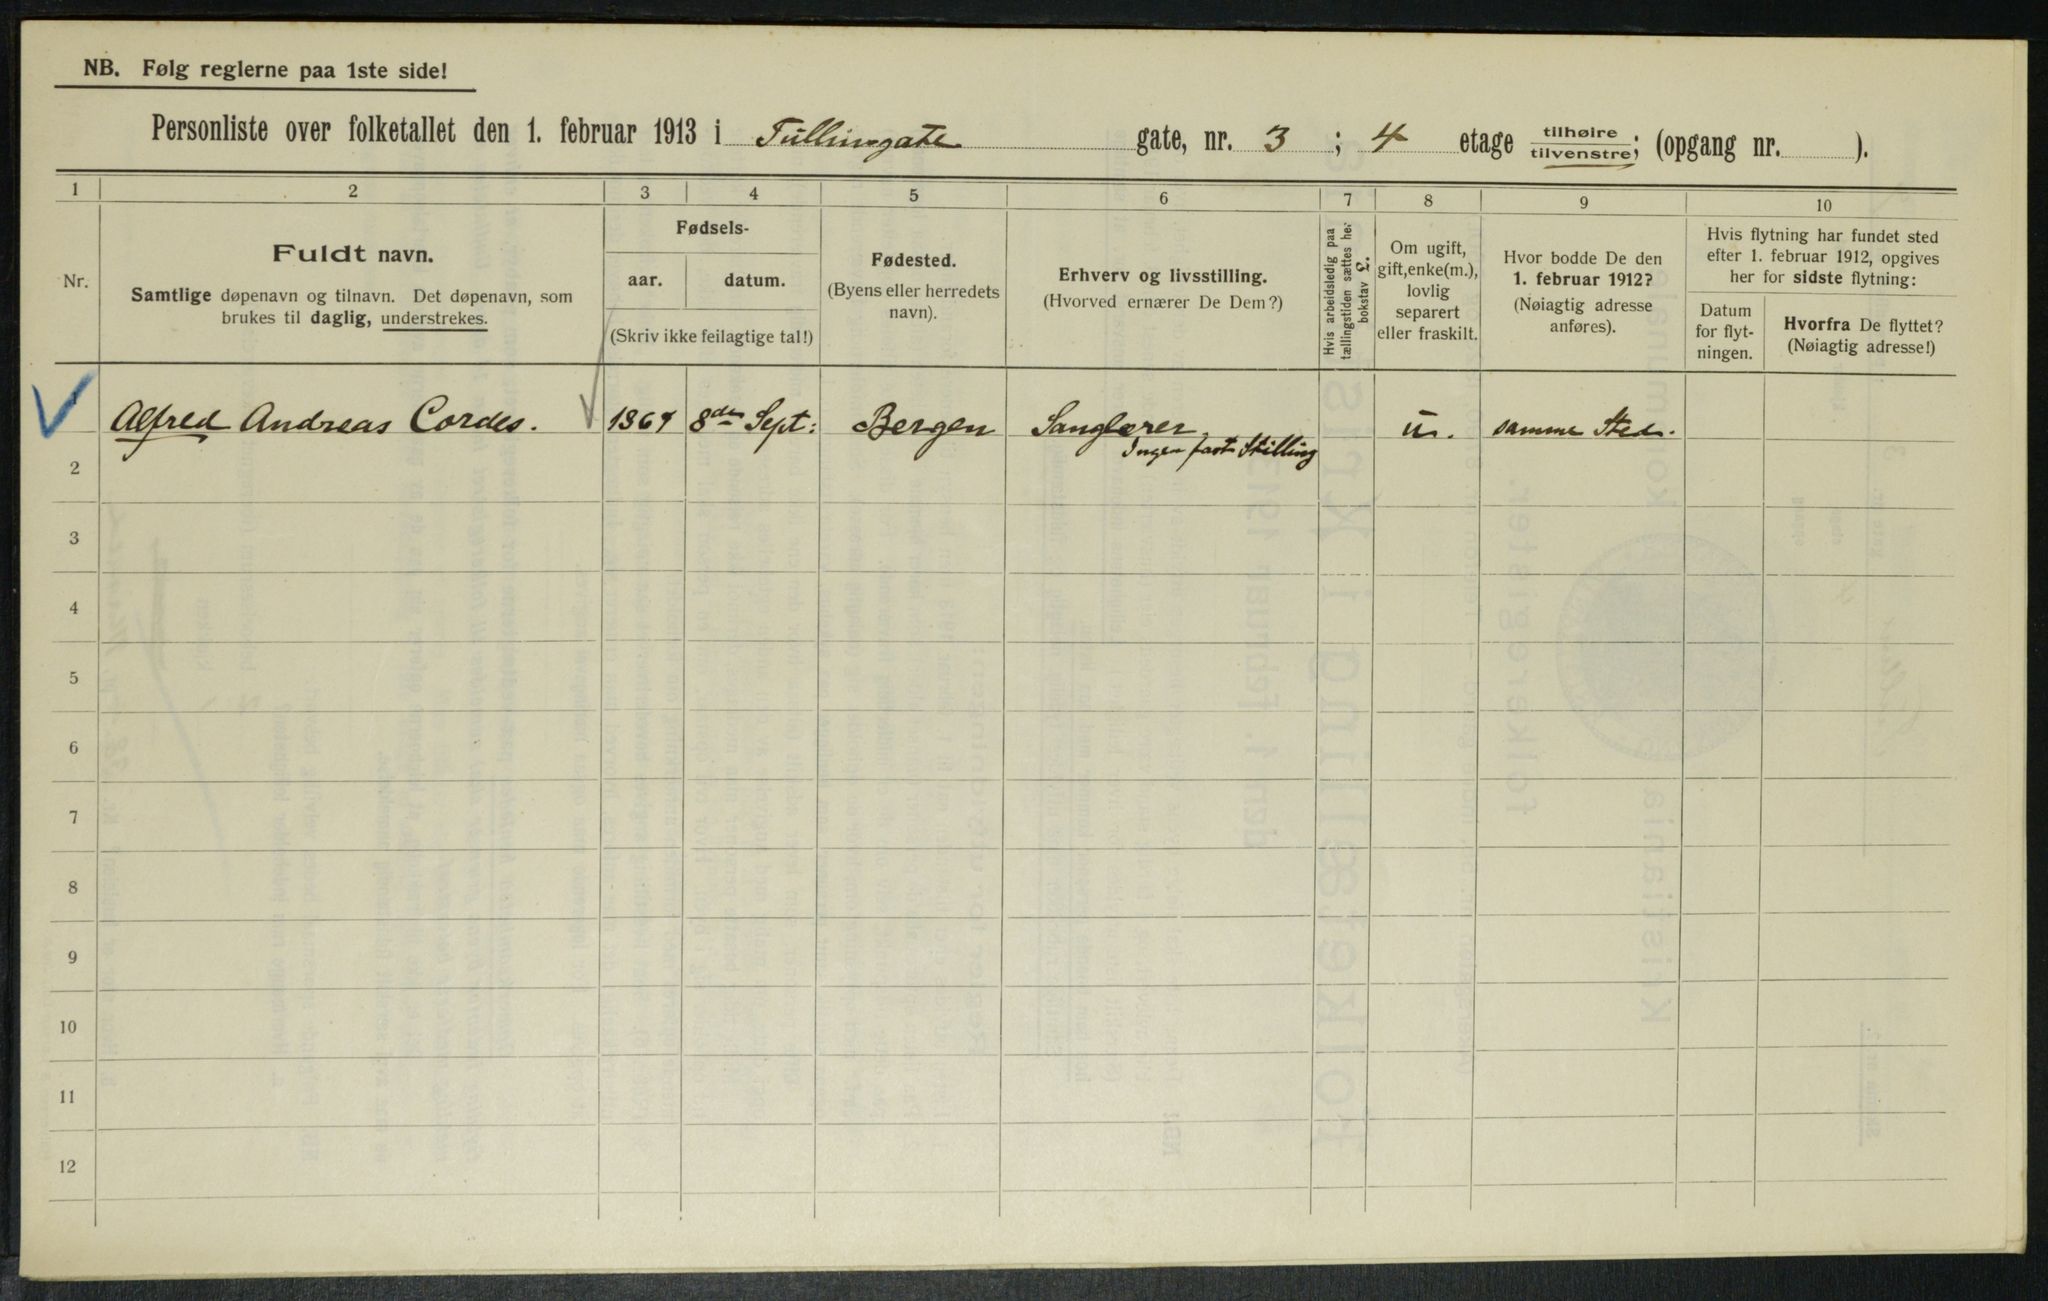 NB. Følg reglerne paa 1ste side!
Personliste over folketallet den 1. februar 1913 i Tullinsgate gate, nr. 3 ; 4 etage tilhøire tilvenstre; (opgang nr. ).
1 2 3 4 5 6 7 8 9 10
Nr.
Fuldt navn.
Samtlige døpenavn og tilnavn. Det døpenavn, som
brukes til daglig, understrekes.
Fødsels-
aar. datum.
(Skriv ikke feilagtige tal!)
Fødested.
(Byens eller herredets
navn).
Erhverv og livsstilling.
(Hvorved ernærer De Dem?)
Hvis arbeidsledig paa
tællingstiden sættes her
bokstav L.
Om ugift,
gift, enke(m.),
lovlig
separert
eller fraskilt.
Hvor bodde De den
1. februar 1912?
(Nøiagtig adresse
anføres).
Hvis flytning har fundet sted
efter 1. februar 1912, opgives
her for sidste flytning:
Datum
for flyt-
ningen.
Hvorfra De flyttet?
(Nøiagtig adresse!)
1 Alfred Andreas Cordes. 8de Sept: Bergen Sanglærer. u. samme Sted.
Ingen fast Stilling
2
3
4
5
6
7
8
9
10
11
12